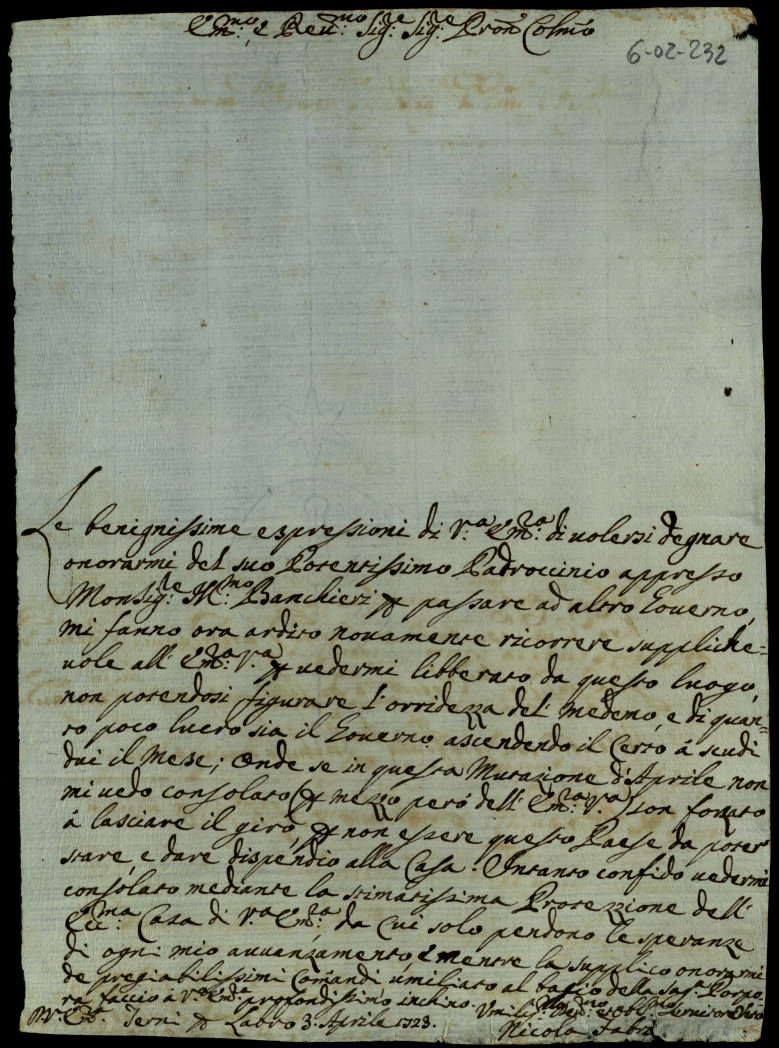 Em.mo, e Reu.mo Sig.re Sig.re Pron Colmo
6-02-232
Le benignissime espressioni di V.a Em.a di uolersi degnare
onorarmi del suo Potentissimo Padroccinio appresso
Monsig.re Ill.mo Banchieri p passare ad altro Gouerno,
mi fanno ora ardito nouamente ricorrere suppliche=
uole all' Em.a V.a p uedermi libberato da questo luogo,
non potendosi figurare l'orridezza del medemo, e di quan=
to poco lucro sia il Gouerno ascendendo il Certo á scudi
dui il Mese; Onde se in questa Mutazione d'Aprile non
mi uedo consolato (p mezzo peró dell' Em.a V.a) son forzato
á lasciare il giro, p non essere questo Paese da poter
stare, e dare dispendio alla Casa. Intanto confido uedermi
consolato mediante la stimatissima Protezzione dell'
Ecc.ma Casa di V.a Em.a da Cui solo pendono le speranze
di ogni mio auuanzamento, e mentre la supplico onorarmi
de pregiabilissimi Comandi umiliato al bacio della Sag.a Porpo=
ra faccio á V.a Em.a profondissimo inchino.
Terni p Labro 3. Aprile 1723.
Umiliss. Seruitore
Nicola